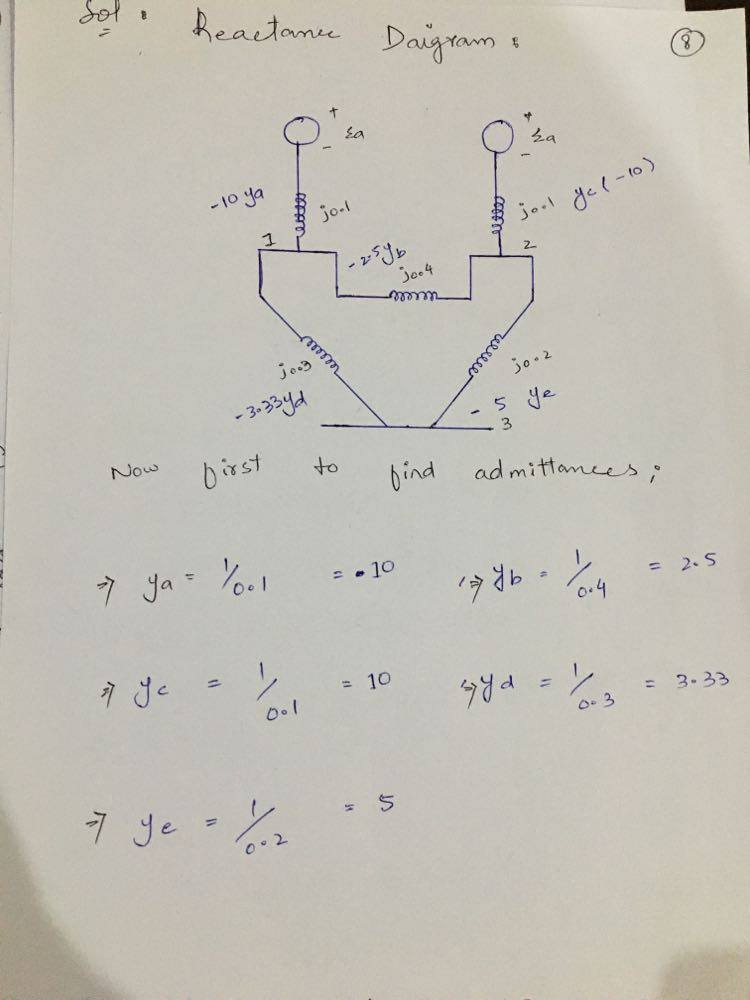 Sol :
Reactance Daigram :
8
+ Ea -
+ Ea -
-10 ya
j0.1
j0.1 yc (-10)
1
2
-2.5 yb
j0.4
j0.3
j0.2
-3.33 yd
- 5 ye
3
Now first to find admittances;
⇒ ya = 1/0.1 = 10
⇒ yb = 1/0.4 = 2.5
⇒ yc = 1/0.1 = 10
⇒ yd = 1/0.3 = 3.33
⇒ ye = 1/0.2 = 5